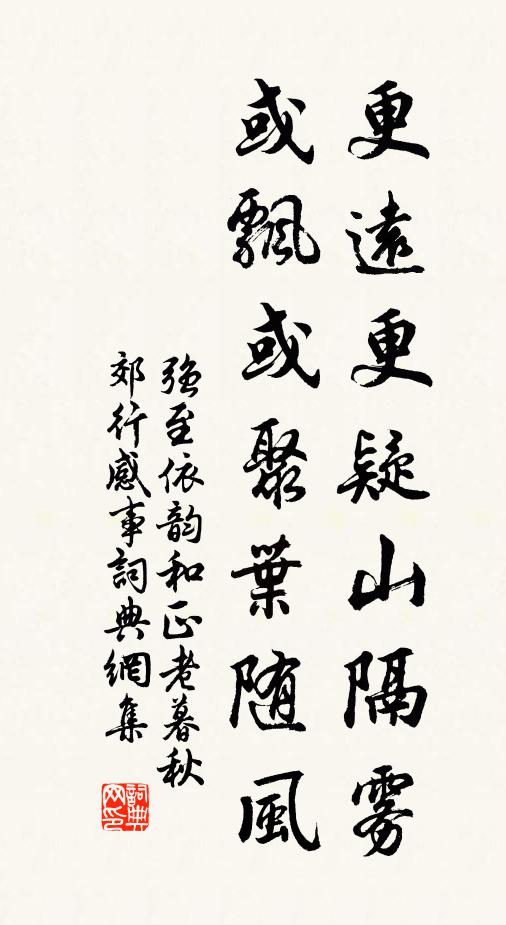 更遠更疑山隔霧
或飄或聚葉随風
強至依韵和正老暮秋
郊行感事詞典網集
詞典
网印